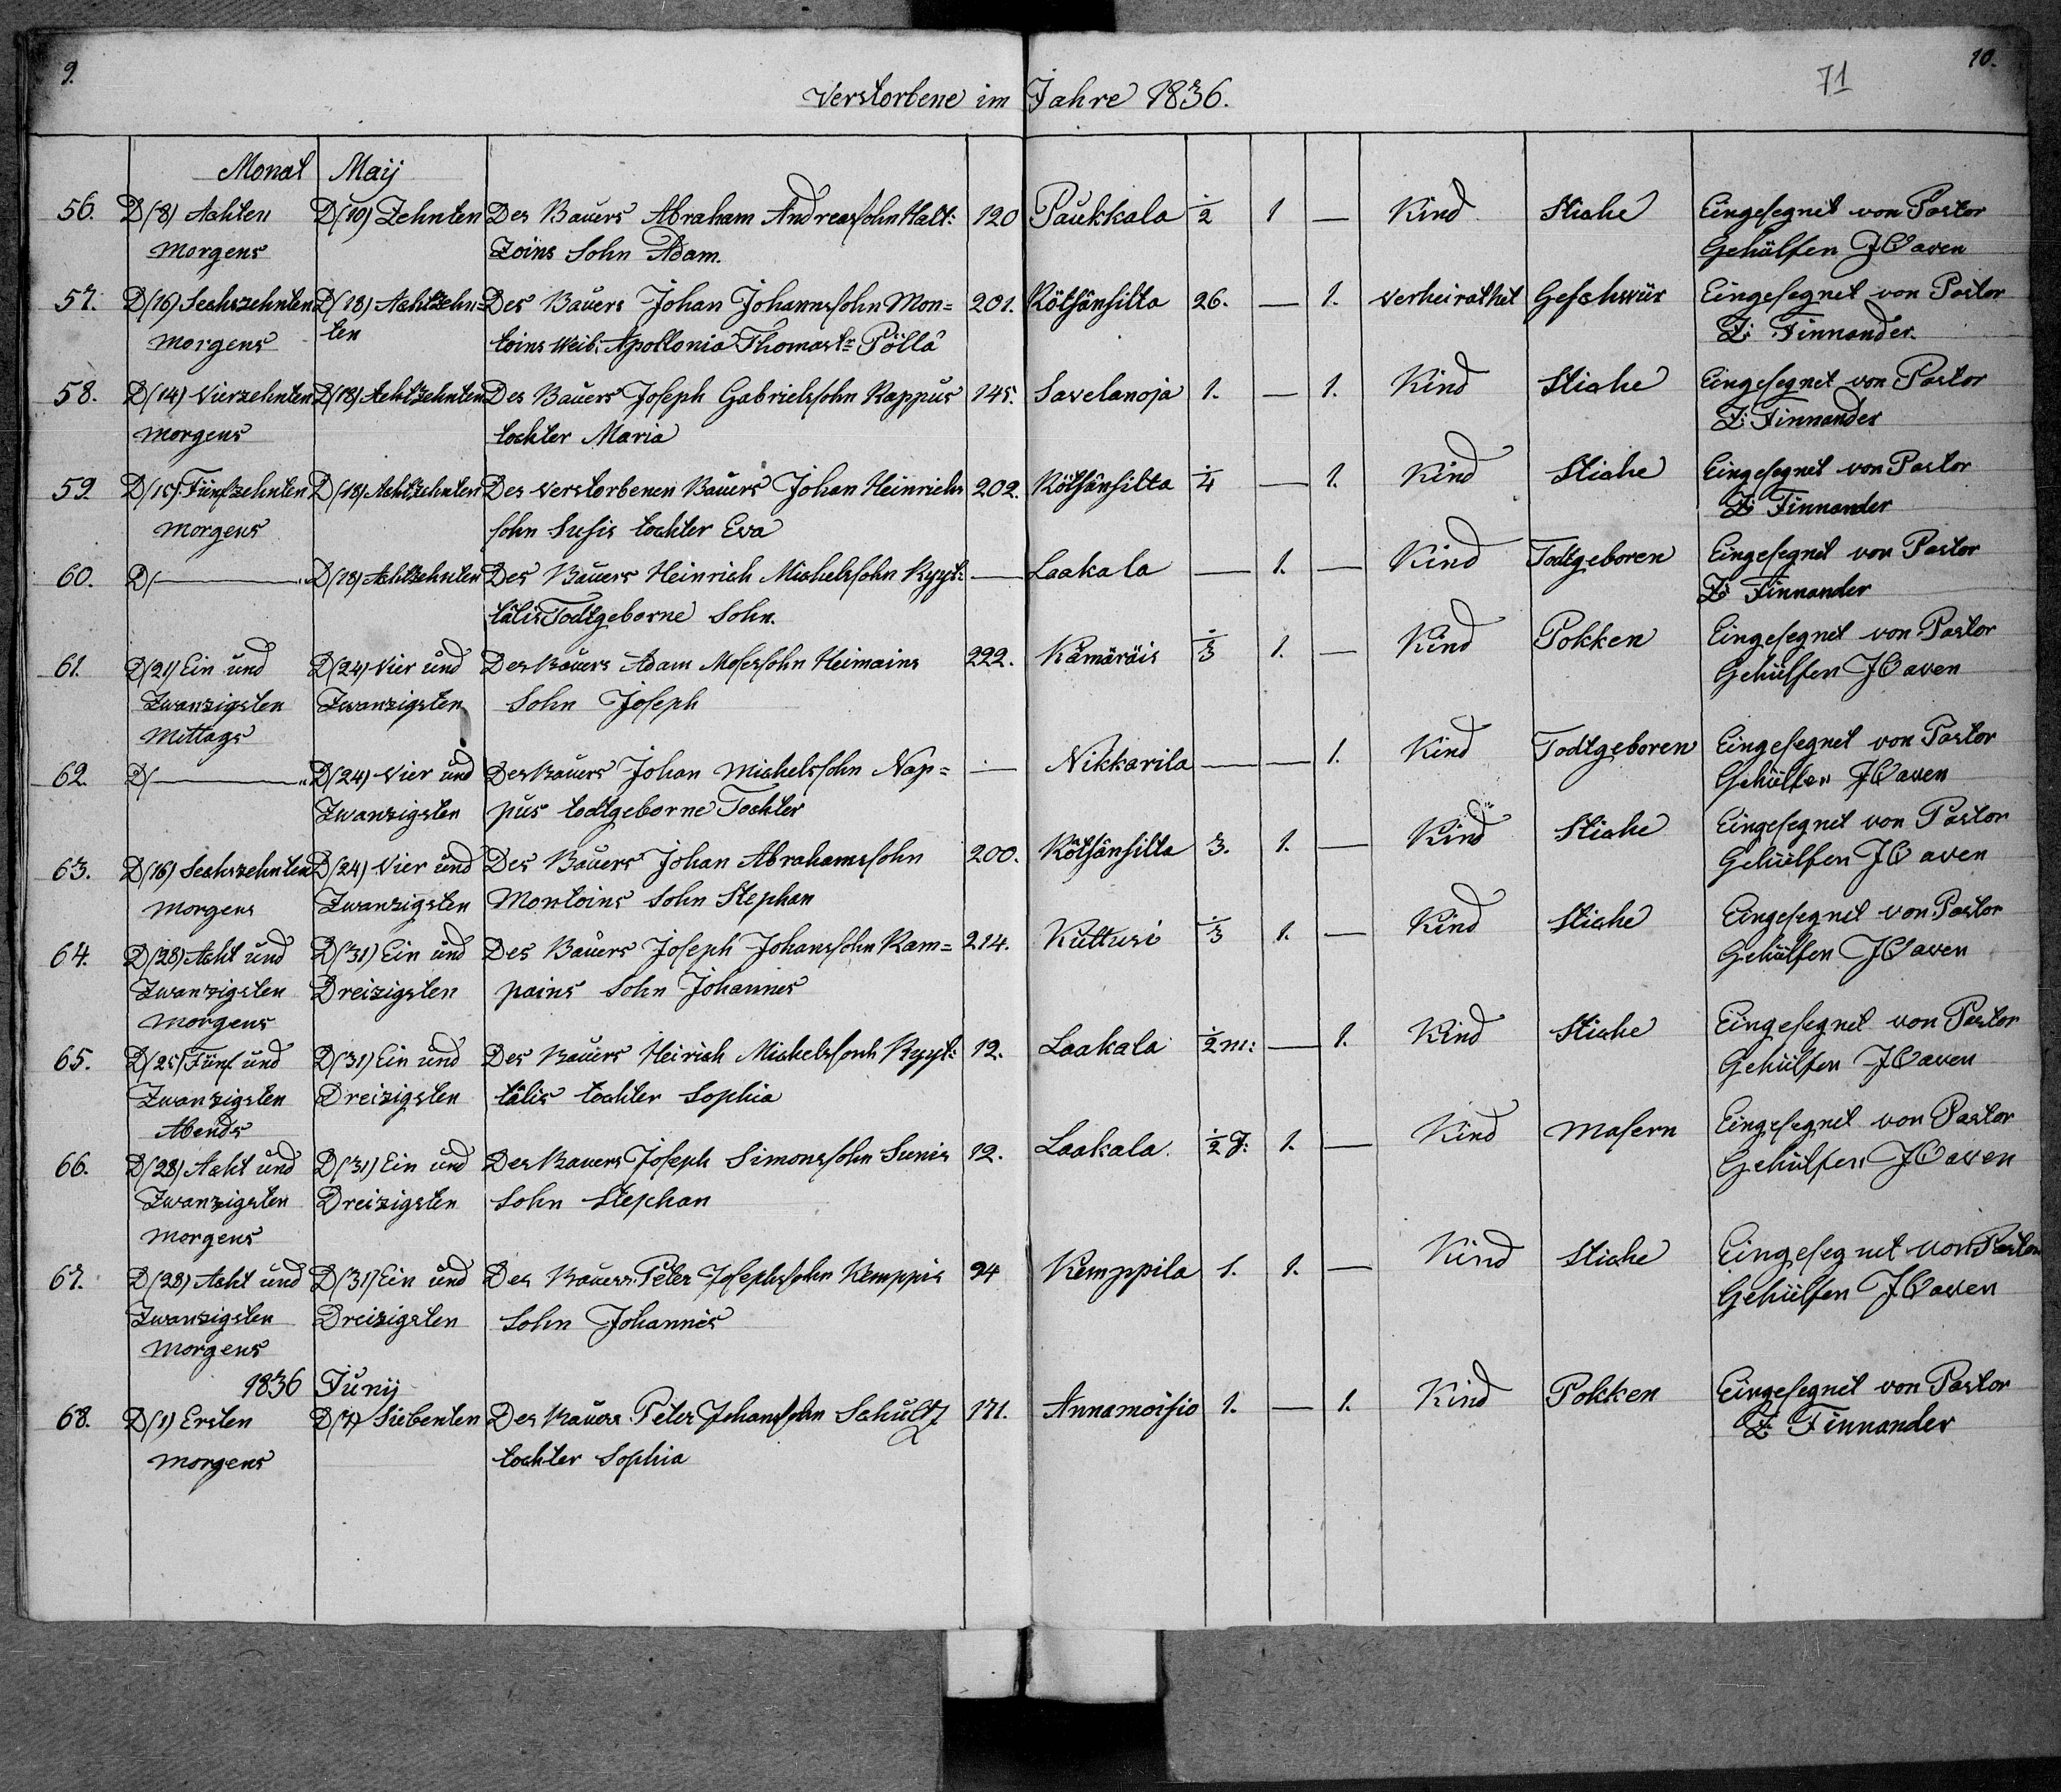 9.
10.
71
Verstorbene im Jahre 1836.
Monat Maij
56. D(8) Achten D(10) Zehnten Des Bauers Abraham Andreassohn Halt: 120 Paukkala ½ 1 — Kind Stiche Eingesegnet von Pastor
Morgens Zoins Sohn Adam. Gehülfen JCaven
57. D(16) Sechszehnten D(18) Achtzehn= Des Bauers Johan Johannssohn Mon= 201. Kötsänsilta 26. — 1. Verheirathet Geschwür Eingesegnet von Pastor
Morgens ten toins Weib: Apollonia Thomastr Pöllä Z: Finnander.
58. D(14) Vierzehnten D(18) Achtzehnten Des Bauers Joseph Gabrielssohn Kappus 145. Savelanoja 1. — 1. Kind Stiche Eingesegnet von Pastor
Morgens tochter Maria Z: Finnander
59. D(15) Fünfzehnten D(18) Achtzehnten Des verstorbenen Bauers Johan Heinrichs 202. Kötsänsilta ¼ — 1. Kind Stiche Eingesegnet von Pastor
Morgens sohn Susis tochter Eva Z: Finnander
60. D(— D(18) Achtzehnten Des Bauers Heinrich Michelssohn Kyyt: — Laakala — 1. — Kind Todtgeboren Eingesegnet von Pastor
tälis Todtgeborne Sohn. Z: Finnander
61. D(21) Ein und D(24) Vier und Des Bauers Adam Mosessohn Heimains 222. Kämäräis ⅓ 1. — Kind Pokken Eingesegnet von Pastor
Zwanzigsten Zwanzigsten Sohn Joseph Gehülfen JCaven
Mittags
62. D(— D(24) Vier und Des Bauers Johan Michelssohn Nap= — Nikkarila — — 1. Kind Todtgeboren Eingesegnet von Pastor
Zwanzigsten pus todtgeborne Tochter Gehülfen JCaven
63. D(16) Sechszehnten D(24) Vier und Des Bauers Johan Abrahamssohn 200. Kötsänsilta 3. 1. — Kind Stiche Eingesegnet von Pastor
Morgens Zwanzigsten Montoins Sohn Stephan Gehülfen JCaven
64. D(28) Acht und D(31) Ein und Des Bauers Joseph Johanssohn Kam= 214. Kuttusi ⅓ 1. — Kind Stiche Eingesegnet von Pastor
Zwanzigsten Dreizigsten pains Sohn Johannes Gehülfen JCaven
Morgens
65. D(25) Fünf und D(31) Ein und Des Bauers Heirich Michelssonh Kyyt: 12. Laakala ½ m: — 1. Kind Stiche Eingesegnet von Pastor
Zwanzigsten Dreizigsten tälis tochter Sophia Gehülfen JCaven
Abends
66. D(28) Acht und D(31) Ein und Des Bauers Joseph Simonssohn Sunis 12. Laakala. ½ J: 1. — Kind Masern Eingesegnet von Pastor
Zwanzigsten Dreizigsten Sohn Stephan Gehülfen JCaven
Morgens
67. D(28) Acht und D(31) Ein und Des Bauers Peter Josephssohn Kemppis 94 Kemppila 1. 1. — Kind Stiche Eingesegnet von Pastor
Zwanzigsten Dreizigsten Sohn Johannes Gehülfen JCaven
Morgens
1836 Junij
68. D(1) Ersten D(7) Siebenten Des Bauers Peter Johanssohn Schultz 171. Annamoisio 1. — 1. Kind Pokken Eingesegnet von Pastor
Morgens tochter Sophia Z: Finnander